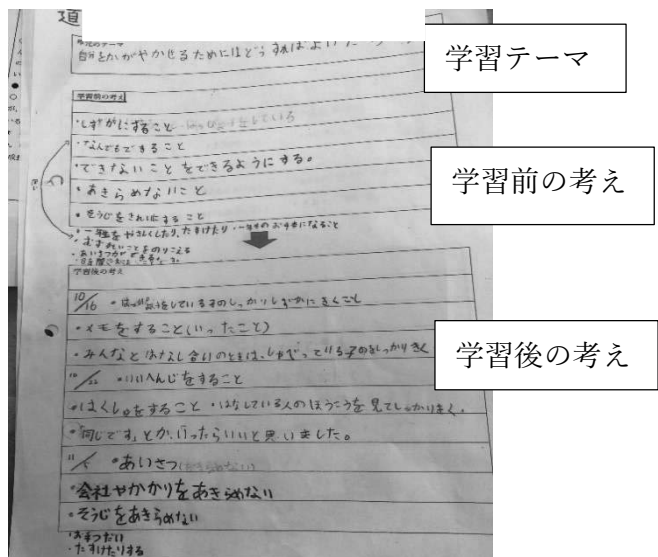 道
今日のテーマ
自分をかがやかせるためにはどうすればよい
学習テーマ
学習前の考え
・しずかにすること
・なんでもすること
・できないことをできるようにする。
学習前の考え
・あきらめないこと
・そうじをきれいにすること
・一年生をやさしくしたり、たすけたり・一年生のお手本になること
・むずかしいことをのりこえる
・あいさつができる
学習後の考え
10/16 ・はっぴょうをしている子のしっかりしずかにきくこと
・メモをすること(いったこと)
・みんなとはなし合いのときは、しゃべっている子のをしっかりきく
学習後の考え
10/22 ・いいへんじをすること
・はくしゅをすること ・はなしている人のほうこうを見てしっかりきく。
・「同じです」とか、行ったらいいと思いました。
・あいさつ(あきらめない)
・会社やかかりをあきらめない
・そうじをあきらめない
・おてつだい
・たすけたりする